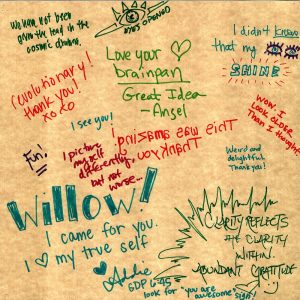 We have not been
given the lead in the
cosmic drama.
EYES OPENED
I didn't know
that my
SHINE
Love your
brainpan
Great Idea
-Ansel
revolutionary!
thank you!
xo xo
I see you!
Wow, I
Look older
Than I thought
This was amazing
Thankyou
Fun!
I picture
myself
differently,
but not
worse-
Weird and
delightful.
Thank you!
Willow!
I came for you.
I ♡ my true self
CLARITY REFLECTS
THE CLARITY
WITHIN.
ABUNDANT GRATITUDE
look for "you are
awesome" sign!